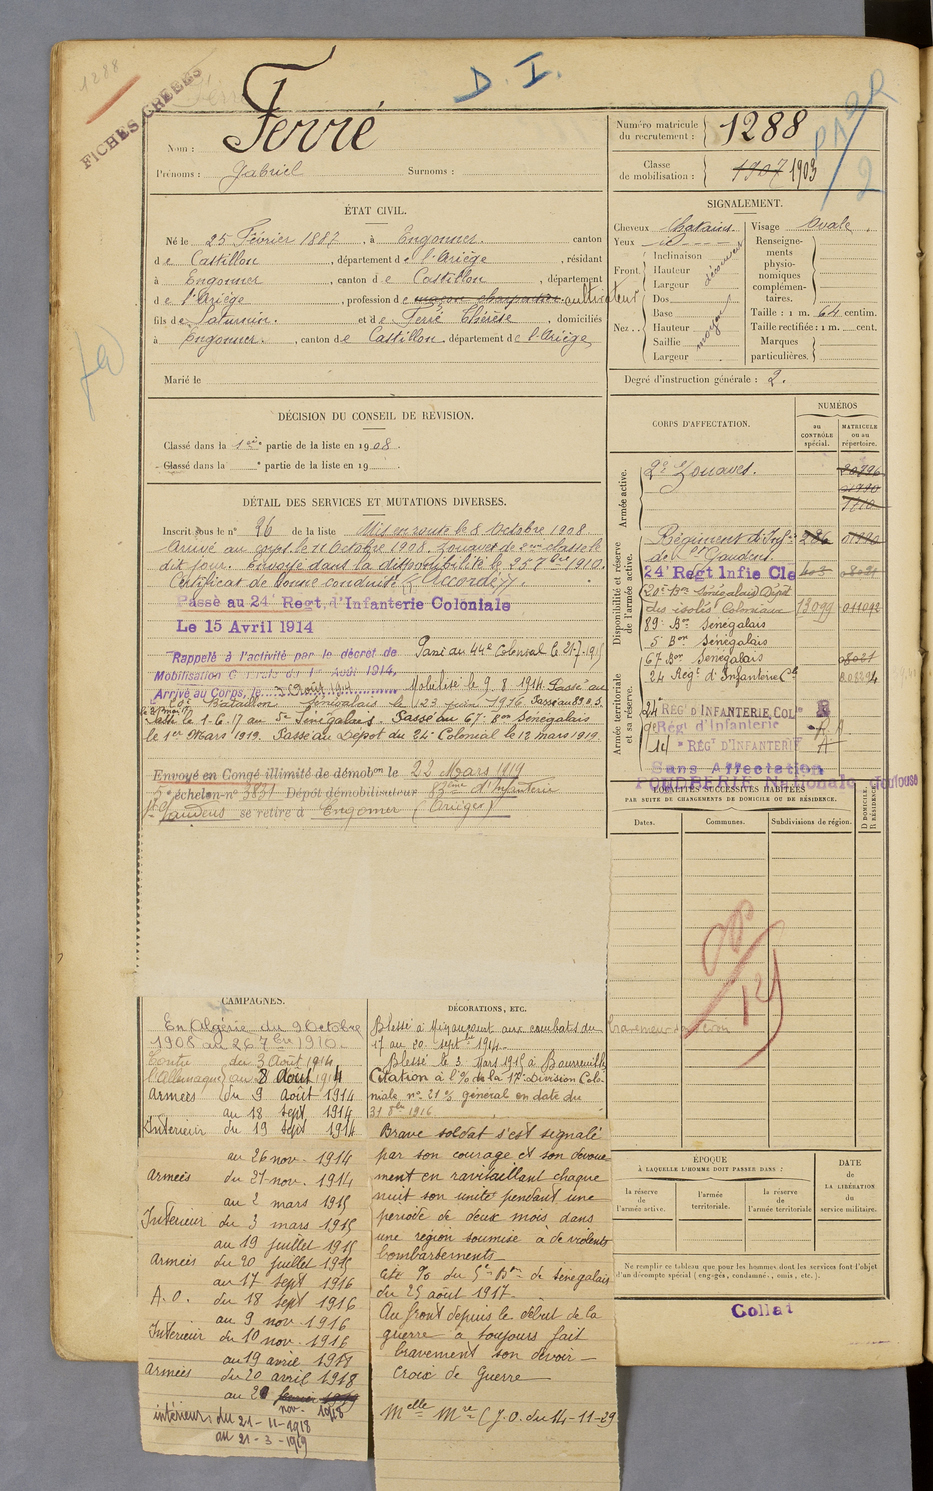 1288
FICHES CRÉÉES
D. I.
Nom : Ferré
Prénoms : Gabriel Surnoms :
Numéro matricule du recrutement : 1288
Classe de mobilisation : 1907 1903
ÉTAT CIVIL.
Né le 25 Février 1887, à Engomer. canton
de Castillon, département de l'Ariège, résidant
à Engomer, canton de Castillon, département
de l'Ariège, profession de maçon charpentier cultivateur
fils de Saturnin. et de Ferré Thérèse, domiciliés
à Engomer., canton de Castillon. département de l'Ariège
Marié le
SIGNALEMENT.
Cheveux chatains. Visage Ovale.
Yeux id
Front. Inclinaison
Hauteur
Largeur
découvert
Nez.. Dos
Base
Hauteur
Saillie
Largeur
moyen
Renseigne-
ments
physio-
nomiques
complémen-
taires.
Taille : 1 m. 64 centim.
Taille rectifiée : 1 m. cent.
Marques
particulières.
Degré d'instruction générale : 2.
DÉCISION DU CONSEIL DE RÉVISION.
Classé dans la 1ère partie de la liste en 1908.
Classé dans la e partie de la liste en 19
DÉTAIL DES SERVICES ET MUTATIONS DIVERSES.
Inscrit sous le n° 26 de la liste Mis en route le 8 Octobre 1908
Arrivé au corps le 11 Octobre 1908. Zouave de 2me classe le
dit jour. Envoyé dans la disponibilité le 25 7bre 1910.
Certificat de bonne conduite "Accordé".
Passé au 24e Regt. d'Infanterie Coloniale
Le 15 Avril 1914
Rappelé à l'activité par le décret de
Mobilisation Générale du 1er Août 1914,
Arrivé au Corps, le 3 Août 1914
Passé au 44e Colonial le 21-7-15
Mobilisé le 9 8 1914 Passé au
20e Bataillon Sénégalais le 23 juin 1916 Passé au 89e B.S.
Passé le 1-6-17 au 5e Sénégalais. Passé au 67e Bon Sénégalais
le 1er Mars 1919. Passé au Dépôt du 24e Colonial le 12 mars 1919.
Envoyé en Congé illimité de démobon le 22 Mars 1919
5e échelon n° 3851 Dépôt démobilisateur 83ème d'Infanterie
St Gaudens se retire à Engomer (Ariège)
CORPS D'AFFECTATION.
NUMÉROS
au CONTRÔLE spécial.
MATRICULE ou au répertoire.
Armée active.
2e Zouaves.
Disponibilité et réserve de l'armée active.
Régiment d'Infie
de St Gaudens.
24e Regt Infie Cle
20e Bon Sénégalais Dépôt
des isolés Coloniaux 13099 011092
89e Bon Sénégalais
5e Bon Sénégalais
67e Bon Sénégalais
24 Regt d'Infanterie Cle
Armée territoriale et sa réserve.
24 RÉGt D'INFANTERIE COLe
Régt d'Infanterie
14e RÉGt D'INFANTERIE
Sans Affectation
POUDRERIE Nationale Toulouse
LOCALITÉS SUCCESSIVES HABITÉES
PAR SUITE DE CHANGEMENTS DE DOMICILE OU DE RÉSIDENCE.
Dates. Communes. Subdivisions de région. D DOMICILE. R RÉSIDENCE.
CAMPAGNES.
En Algérie du 9 Octobre
1908 au 26 7bre 1910.
Contre du 3 Août 1914
l'Allemagne au 8 Août 1914
Armées du 9 août 1914
au 18 sept 1914
Intérieur du 19 sept 1914
au 26 nov. 1914
Armées du 27 nov. 1914
au 2 mars 1915
Intérieur du 3 mars 1915
au 19 juillet 1915
Armées du 20 juillet 1915
au 17 sept 1916
A.O. du 18 sept 1916
au 9 nov. 1916
Intérieur du 10 nov. 1916
au 19 avril 1918
Armées du 20 avril 1918
au 20 février 1919
nov. 1918
intérieur du 21-11-1918
au 21-3-1919
DÉCORATIONS, ETC.
Blessé à Mignaucourt aux combats du
17 au 20 septbre 1914.
Blessé le 3 Mars 1915 à Beauséjour
Citation à l'O/ de la 17e Division Colo-
niale n° 21 général en date du
31 8bre 1916
Brave soldat s'est signalé
par son courage et son dévoue-
ment en ravitaillant chaque
nuit son unité pendant une
période de deux mois dans
une région soumise à de violents
bombardements
Cité O/ du 5e Bon de Sénégalais
du 25 août 1917.
Au front depuis le début de la
guerre a toujours fait
bravement son devoir
Croix de Guerre
Melle Mre (J.O. du 14-11-29
ÉPOQUE
À LAQUELLE L'HOMME DOIT PASSER DANS :
la réserve de l'armée active.
l'armée territoriale.
la réserve de l'armée territoriale
DATE DE LA LIBÉRATION du service militaire.
Ne remplir ce tableau que pour les hommes dont les services font l'objet
d'un décompte spécial (engagés, condamnés, omis, etc.).
Collat